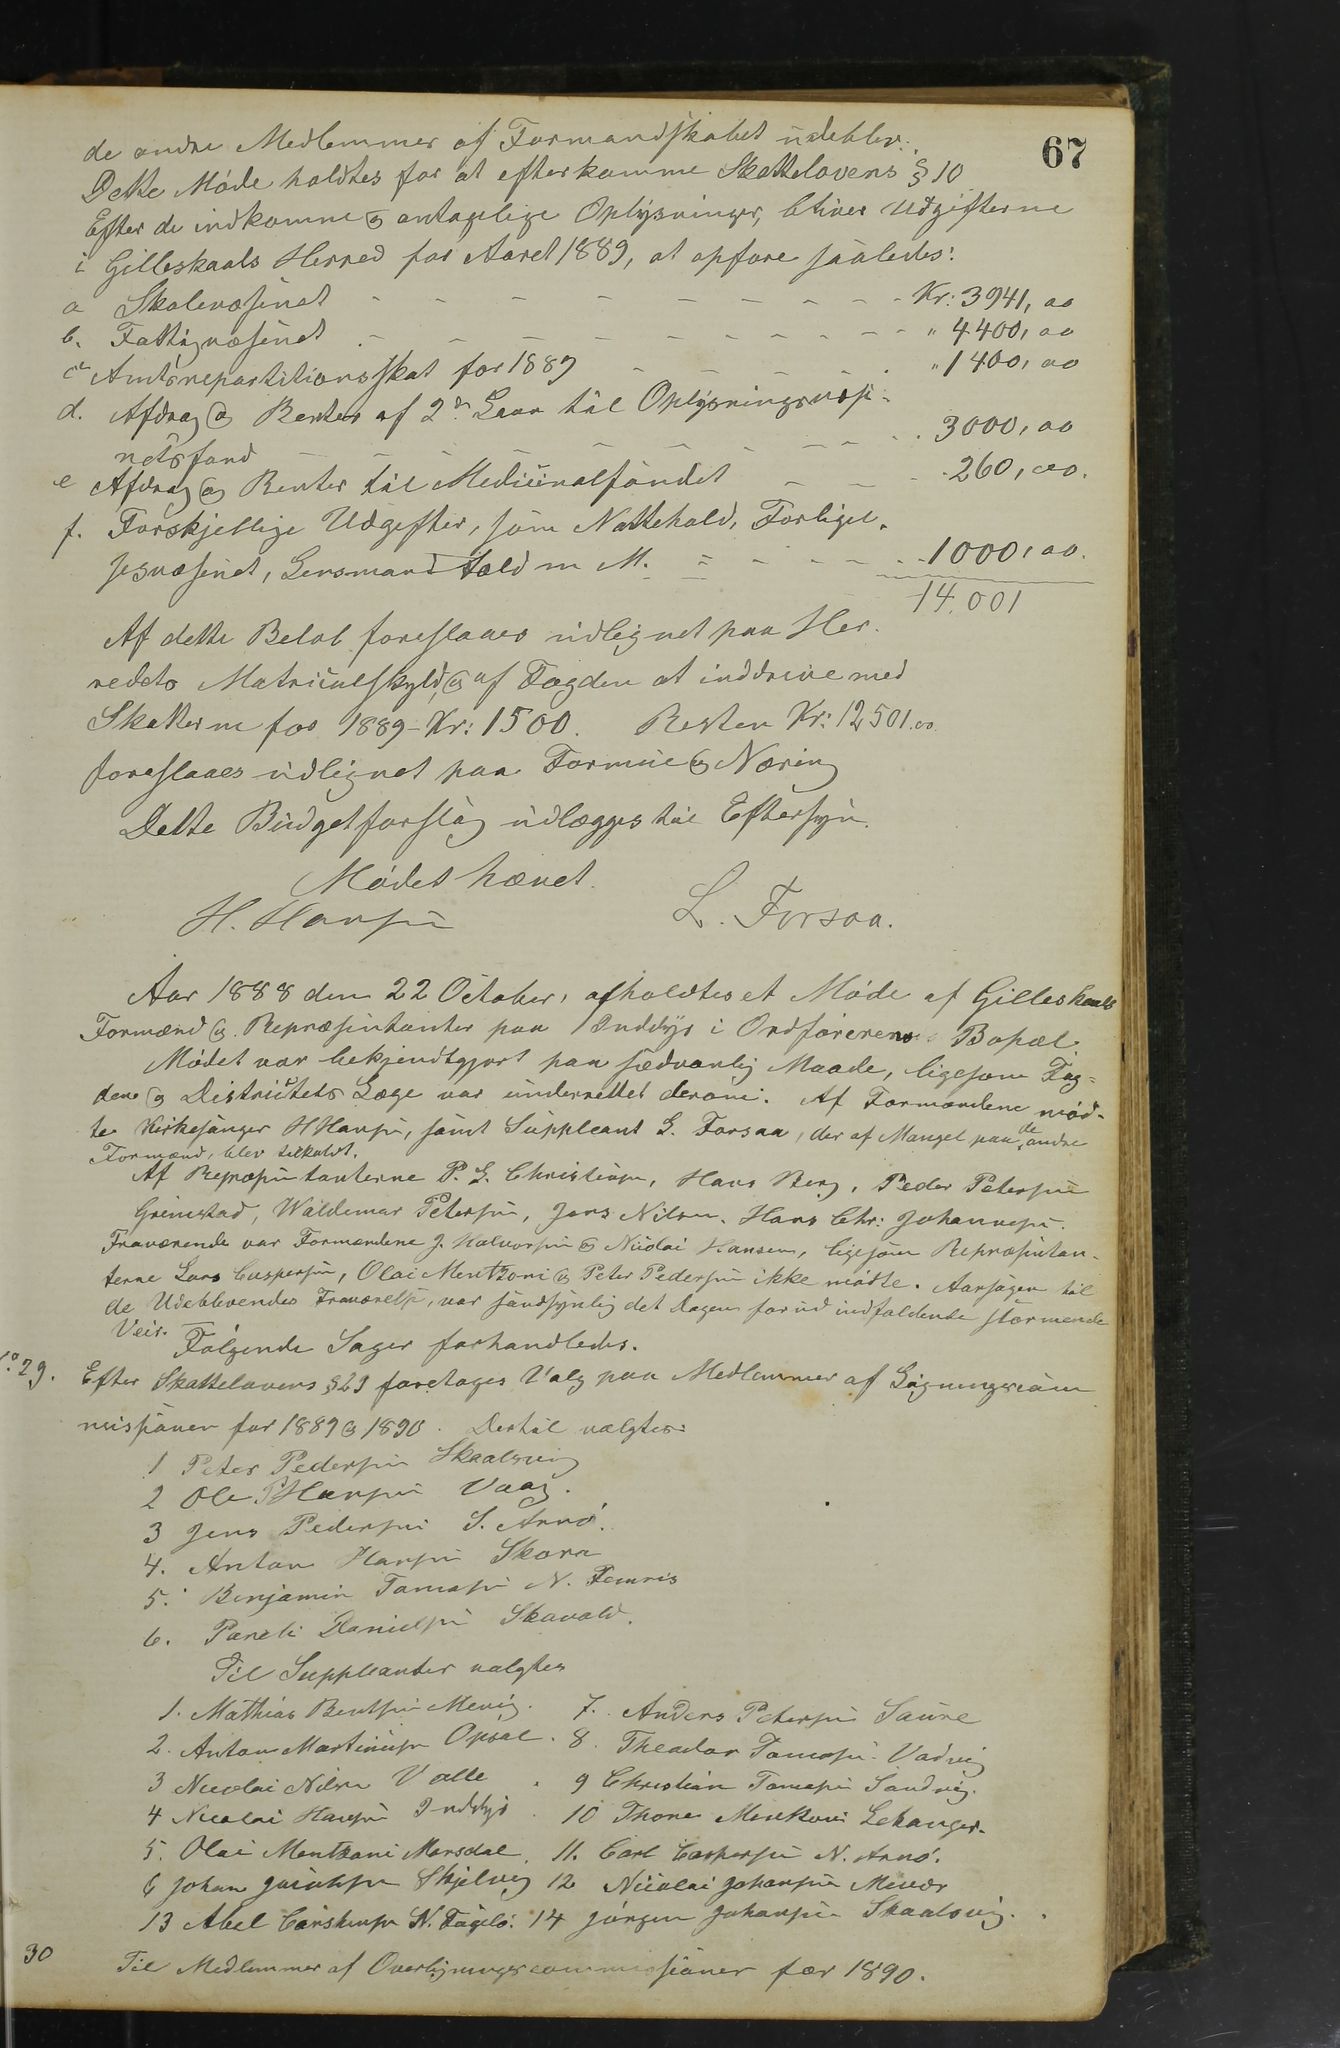 67
de andre Medlemmer af Formandskabet udeblev.
Dette Møde holdtes for at efterkomme Skattelovens § 10
Efter de indkomne og antagelige Oplysninger, bliver Udgifterne
i Gilleskaals Herred for Aaret 1889, at opføre saaledes:
a Skolevæsenet - - - - - - - - Kr: 3941, 00
b. Fattigvæsenet - - - - - - - - " 4400, 00
c Amtsrepartitionsskat for 1889 - - - - " 1400, 00
d. Afdrag og Renter af 2de Laan til Oplysningsvæse-
netsfond - - - - - - - - 3000, 00
e Afdrag og Renter til Medicinalfondet - - - 260, 00.
f. Forskjellige Udgifter, som Nattehold, Forligel-
sesvæsenet, Lensmand told m M. - - - - 1000, 00.
14,001
Af dette Beløb foreslaaes udlignet paa Her-
redets Matriculskyld, og af Fogden at inddrive med
Skatterne for 1889 - Kr: 1500. Resten Kr: 12501.00
foreslaaes udlignet paa Formue og Næring
Dette Budgetforslag udlægges til Eftersyn.
Mødet hævet.
H. Hansen L. Forsaa.
Aar 1888 den 22 October, afholdtes et Møde af Gilleskaals
Formænd og Repræsentanter paa Inddyr i Ordførerens Bopæl
Mødet var bekjendtgjort paa sædvanlig Maade, ligesom Fog-
den og Districtets Læge var underrettet derom. Af Formændene mød-
te Kirkesanger H Hansen, samt Suppleant L. Forsaa, der af Mangel paa de andre
Formænd, blev tilkaldt.
Af Repræsentanterne P. L. Christensen, Hans Berg, Peder Petersen
Grimstad, Waldemar Petersen, Jens Nilsen, Hans Chr: Johannesen.
Fraværende var Formændene J. Halvorsen og Nicolai Hansen, ligesom Repræsentan-
terne Lars Caspersen, Olai Mentzoni og Peter Pedersen ikke mødte. Aarsagen til
de Udeblevendes Fraværelse, var sandsynlig det Dagen forud indfaldende stormende
Veir.
Følgende Sager forhandledes.
No 29. Efter Skattelovens § 29 foretoges Valg paa Medlemmer af Ligningscom
missionen for 1889 og 1890. Dertil valgtes:
1 Peter Pedersen Skaalsvig
2 Ole P Hansen Vaag.
3 Jens Pedersen S. Arnø.
4. Anton Hansen Skora
5. Benjamin Tomasen N. Femris
6. Pareli Danielsen Skavold.
Til Suppleanter valgtes
1. Mathias Bentsen Mevig. 7. Anders Petersen Saure
2. Anton Martinusen Opsal. 8. Theodor Tomasen Vadvig
3 Nicolai Nilsen Valle. 9 Christian Tomasen Sandvig.
4 Nicolai Hansen Inddyr. 10 Thone Mentzoni Lekanger.
5. Olai Mentzoni Marsdal. 11. Carl Caspersen N. Arnø.
6 Johan Jacobsen Skjelvig 12 Nicolai Johansen Mevær
13 Abel N. Fugelø. 14 Jørgen Johansen Skaalsvig.
30 Til Medlemmer af Overligningscommissionen for 1890.